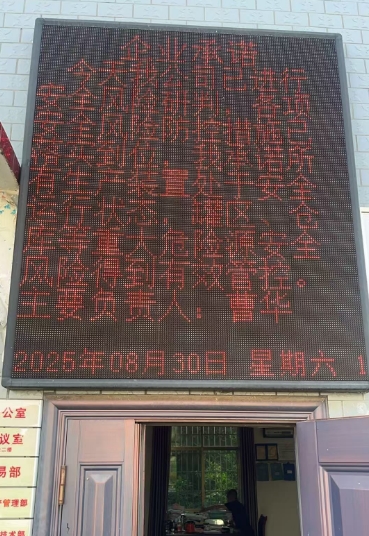 企业承诺
今天我公司已进行
安全风险研判,各项
安全风险防控措施已
落实到位,我承诺所
有生产装置处于安全
运行状态,罐区、仓
库等重大危险源安全
风险得到有效管控。
主要负责人:曹华
2025年08月30日 星期六 1
公室
议室
易部
管理部
技术部